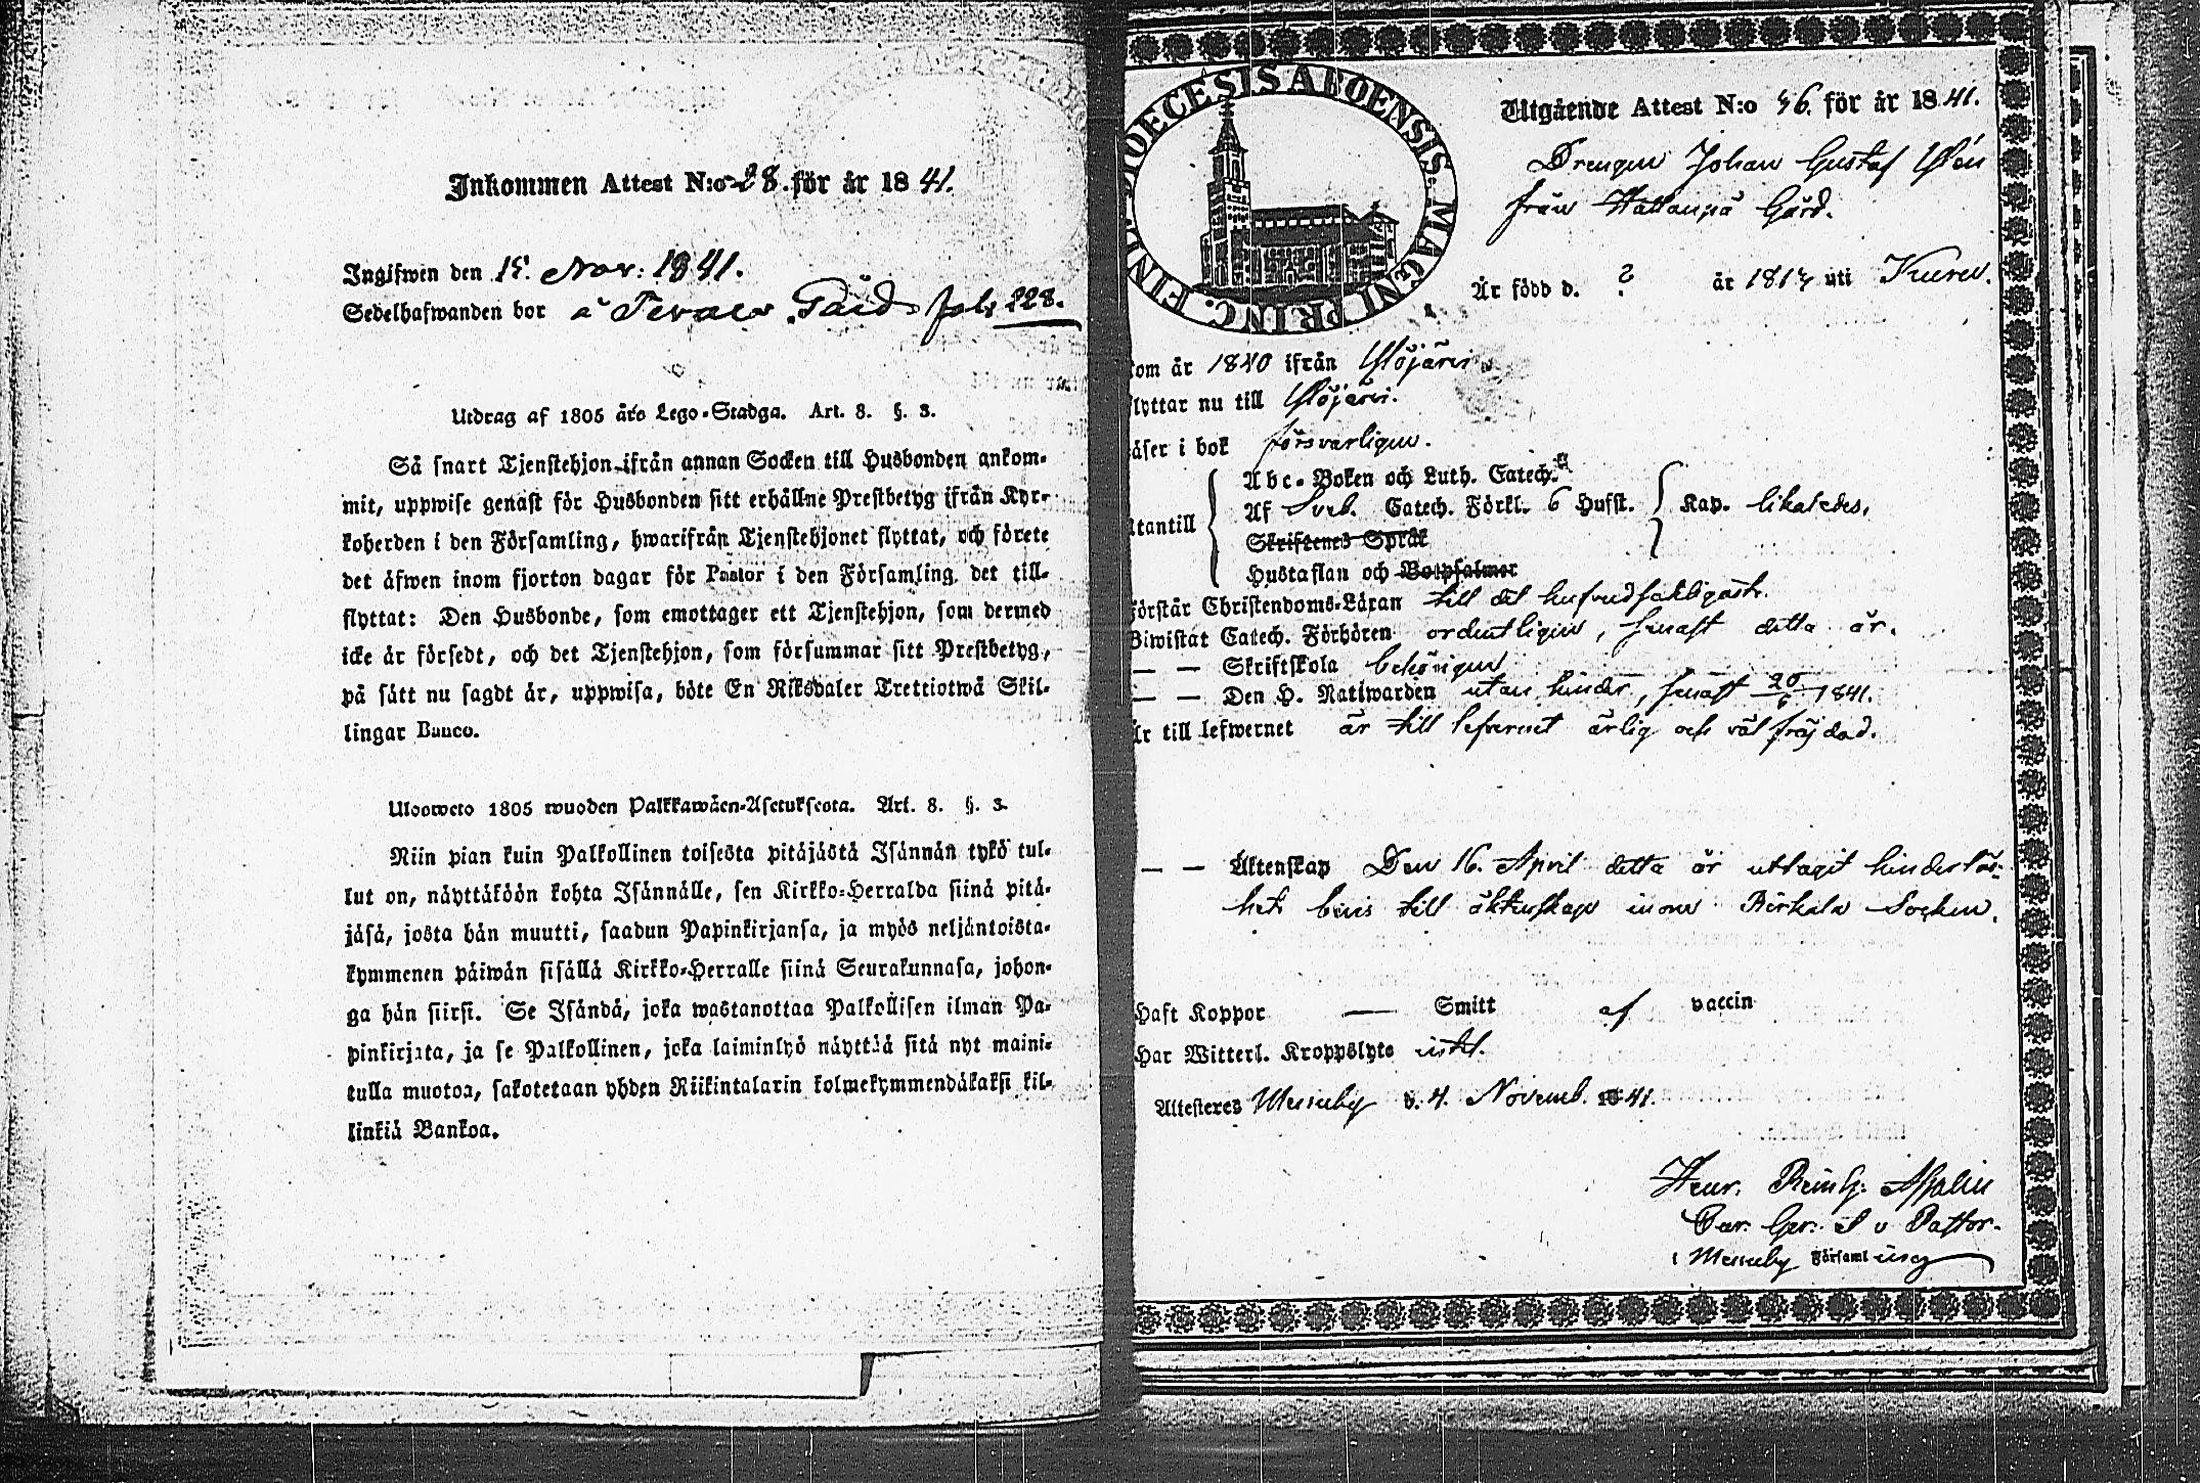 Inkommen Attest N:o 28. för år 1841.
Ingifwen den 15. Nov: 1841.
Sedelhafwanden bor å Gård fol. 228.
Utdrag af 1805 års Lego-Stadga. Art. 8. §. 3.
Så snart Tjenstehjon ifrån annan Socken till Husbonden ankom-
mit, uppwise genast för Husbonden sitt erhållne Prestbetyg ifrån Kyr-
koherden i den Församling, hwarifrån Tjenstehjonet flyttat, och förete
det äfwen inom fjorton dagar för Pastor i den Församling det till-
flyttat: Den Husbonde, som emottager ett Tjenstehjon, som dermed
icke är försedt, och det Tjenstehjon, som försummar sitt Prestbetyg,
på sätt nu sagdt är, uppwisa, böte En Riksdaler Trettiotwå Skil-
lingar Banco.
Uloosweto 1805 wuoden Palkkawäen-Asetuksesta. Art. 8. §. 3.
Niin pian kuin Palkollinen toisesta pitäjästä Isännän tykö tul-
lut on, näyttäköön kohta Isännälle, sen Kirkko-Herralda siinä pitä-
jäsä, josta hän muutti, saadun Papinkirjansa, ja myös neljäntoista-
kymmenen päiwän sisällä Kirkko-Herralle siinä Seurakunnasa, johon-
ga hän siirsi. Se Isändä, joka wastanottaa Palkollisen ilman Pa-
pinkirjata, ja se Palkollinen, joka laiminlyö näyttää sitä nyt maini-
tulla muotoa, sakotetaan yhden Riikintalarin kolmekymmendäkaksi kil-
linkiä Bankoa.
DIOECESIS ABOENSIS. MAGNI PRINC. FINL.
Utgående Attest N:o 46. för år 1841.
Drengen Johan Gustaf
från Hattanpä Gård.
Är född d. ? år uti Kuru.
kom år 1840 ifrån Ylöjärvi
flyttar nu till Ylöjärvi.
läser i bok försvarligen.
Utantill
Abc-Boken och Luth. Catech.
Af Sveb. Catech. Förkl. 6 Hufst. Kap. likaledes,
Skriftenes Språk
Hustaflan och Botpsalmer
förstår Christendoms-Läran till det hufvudsakligaste.
Biwistat Catech. Förhören ordentligen, senast detta år.
— — Skriftskola behörigen
— — Den H. Nattwarden utan hinder, senast 20/6 1841.
Är till lefwernet är till lefvernet ärlig och väl fräjdad.
— — Äktenskap Den 16. April detta år uttagit hinderlös-
hets bevis till äktenskap inom Birkala Socken.
Haft Koppor — Smitt af vaccin
Har Witterl. Kroppslyte intet.
Attesteres Messuby d. 4. Novemb. 1841.
Henr. Reinh. Malin
Pastor.
i Messuby Församling